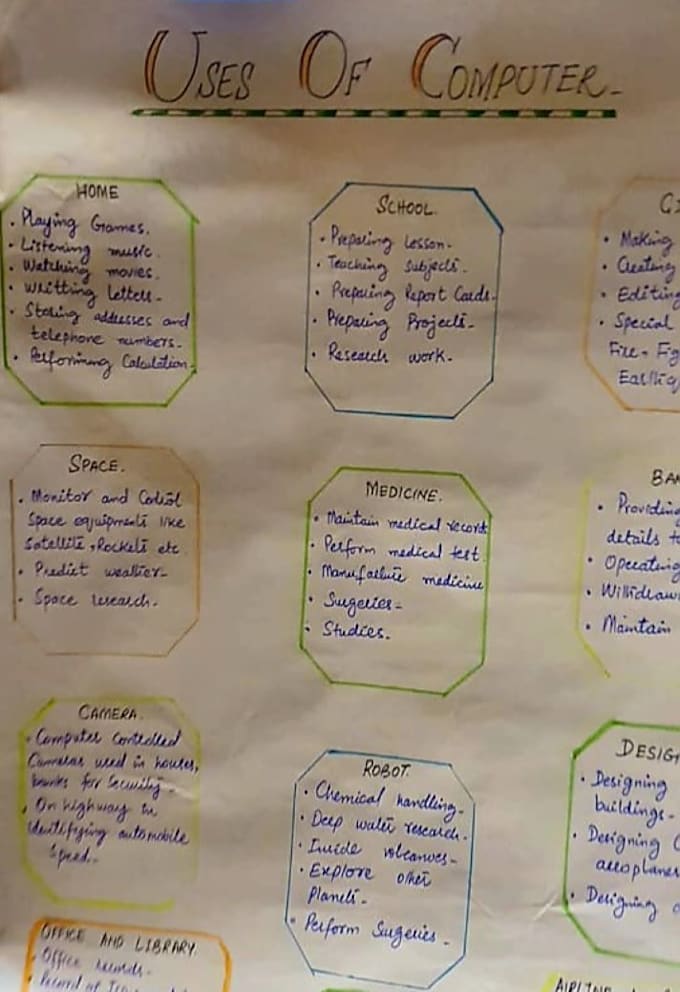 USES OF COMPUTER-
HOME
• Playing Games.
• Listening music.
• Watching movies.
• Writting Letters-
• Storing addresses and
telephone numbers-
• Performing Calculation.
SCHOOL.
• Preparing Lesson-
• Teaching Subjects.
• Preparing Report Cards-
• Preparing Projects-
• Research work-
• Making
• Creating
• Editing
• Special
Fire-
SPACE.
• Monitor and Control
Space equipments like
Satellite, Rockets etc
• Predict weather-
• Space research-
MEDICINE.
• Maintain medical record
• Perform medical test.
• Manufacture medicine
• Surgeries-
• Studies.
• Providing
details
• Operating
•
• Maintain
CAMERA.
• Computer Controlled
Cameras used in houses,
banks for Security-
• On highway in
identifying automobile
Speed-
ROBOT.
• Chemical handling-
• Deep water research-
• Inside volcanoes-
• Explore other
Planets-
• Perform Surgeries-
DESIG
• Designing
buildings-
• Designing
aeroplanes
• Designing
OFFICE AND LIBRARY.
• Office records-
• Record of
AIRLINE